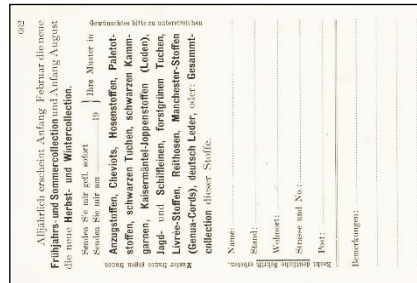 602
Alljährlich erscheint Anfang Februar die neue
Frühjahrs- und Sommercollection und Anfang August
die neue Herbst- und Wintercollection.
Gewünschtes bitte zu unterstreichen
Senden S'e mir gefl. sofort
Senden Sie mir am 19
} Ihre Muster in
Anzugstoffen, Cheviots, Hosenstoffen, Paletot-
stoffen, schwarzen Tuchen, schwarzen Kamm-
garnen, Kaisermäntel-Joppenstoffen (Loden),
Jagd- und Schilfleinen, forstgrünen Tuchen,
Livrée-Stoffen, Reithosen, Manchester-Stoffen
(Genua-Cords), deutsch Leder, oder: Gesammt-
collection dieser Stoffe.
Muster franco gegen franco
Name:
Stand:
Wohnort:
Strasse und No.:
Post:
Recht deutliche Schrift erbeten.
Bemerkungen: